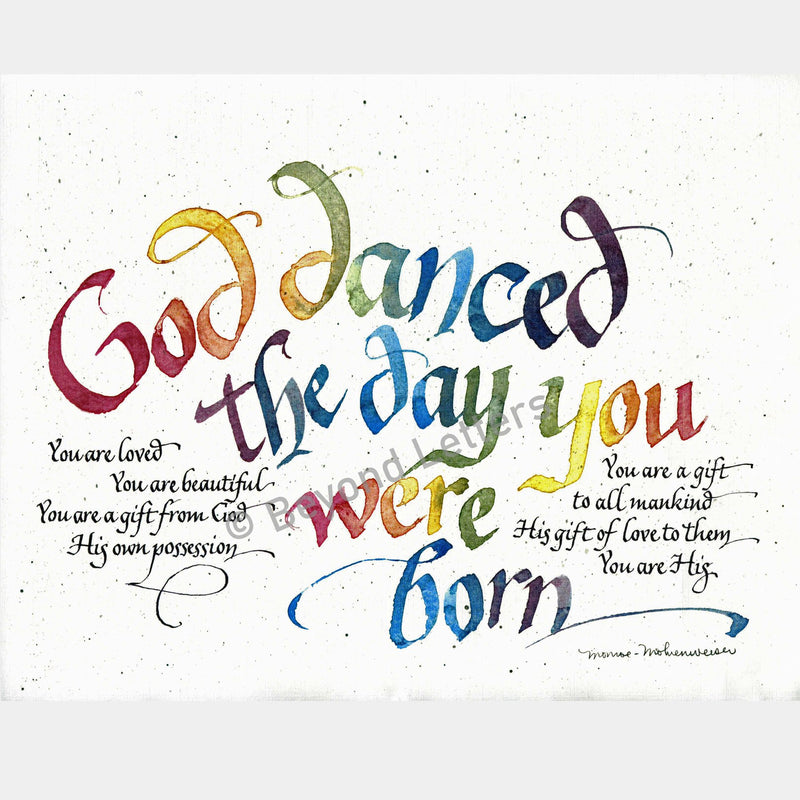 God danced
the day you
were
born
You are loved
You are beautiful
You are a gift from God
His own possession
You are a gift
to all mankind
His gift of love to them
You are His
© Beyond Letters